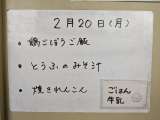 2月20日(月)
・鶏ごぼうご飯
・とうふのみそ汁
・焼きれんこん
ごはん
牛乳